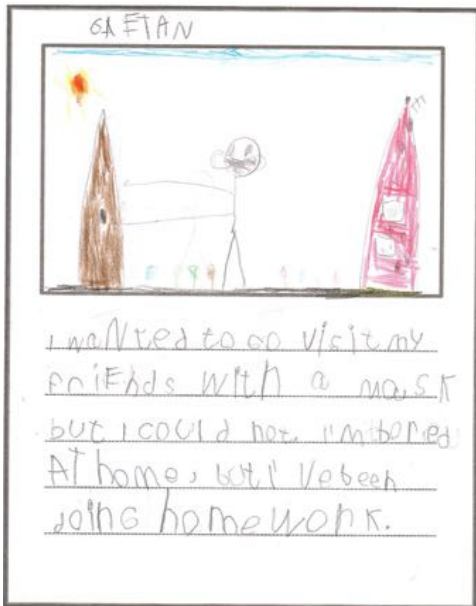 GAETAN
I waNted to GO Visit my
FRiENds WitH a mask
but I COULd not. I'm bored
AT home, but I'Ve been
doiNG homeWORK.